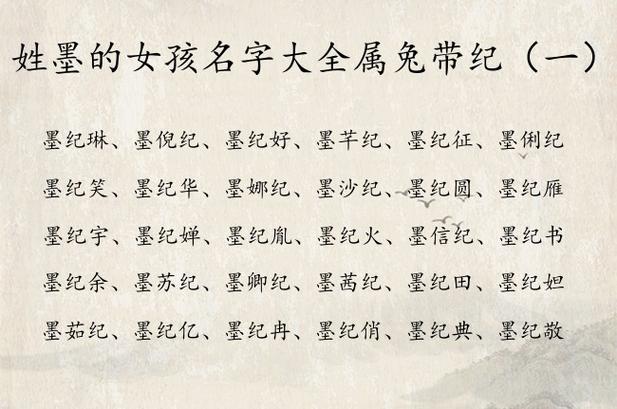 姓墨的女孩名字大全属兔带纪（一）
墨纪琳、墨倪纪、墨纪好、墨芊纪、墨纪征、墨俐纪
墨纪笑、墨纪华、墨娜纪、墨沙纪、墨纪圆、墨纪雁
墨纪宇、墨纪婵、墨纪胤、墨纪火、墨信纪、墨纪书
墨纪余、墨苏纪、墨卿纪、墨茜纪、墨纪田、墨纪妲
墨茹纪、墨纪亿、墨纪冉、墨纪俏、墨纪典、墨纪敬